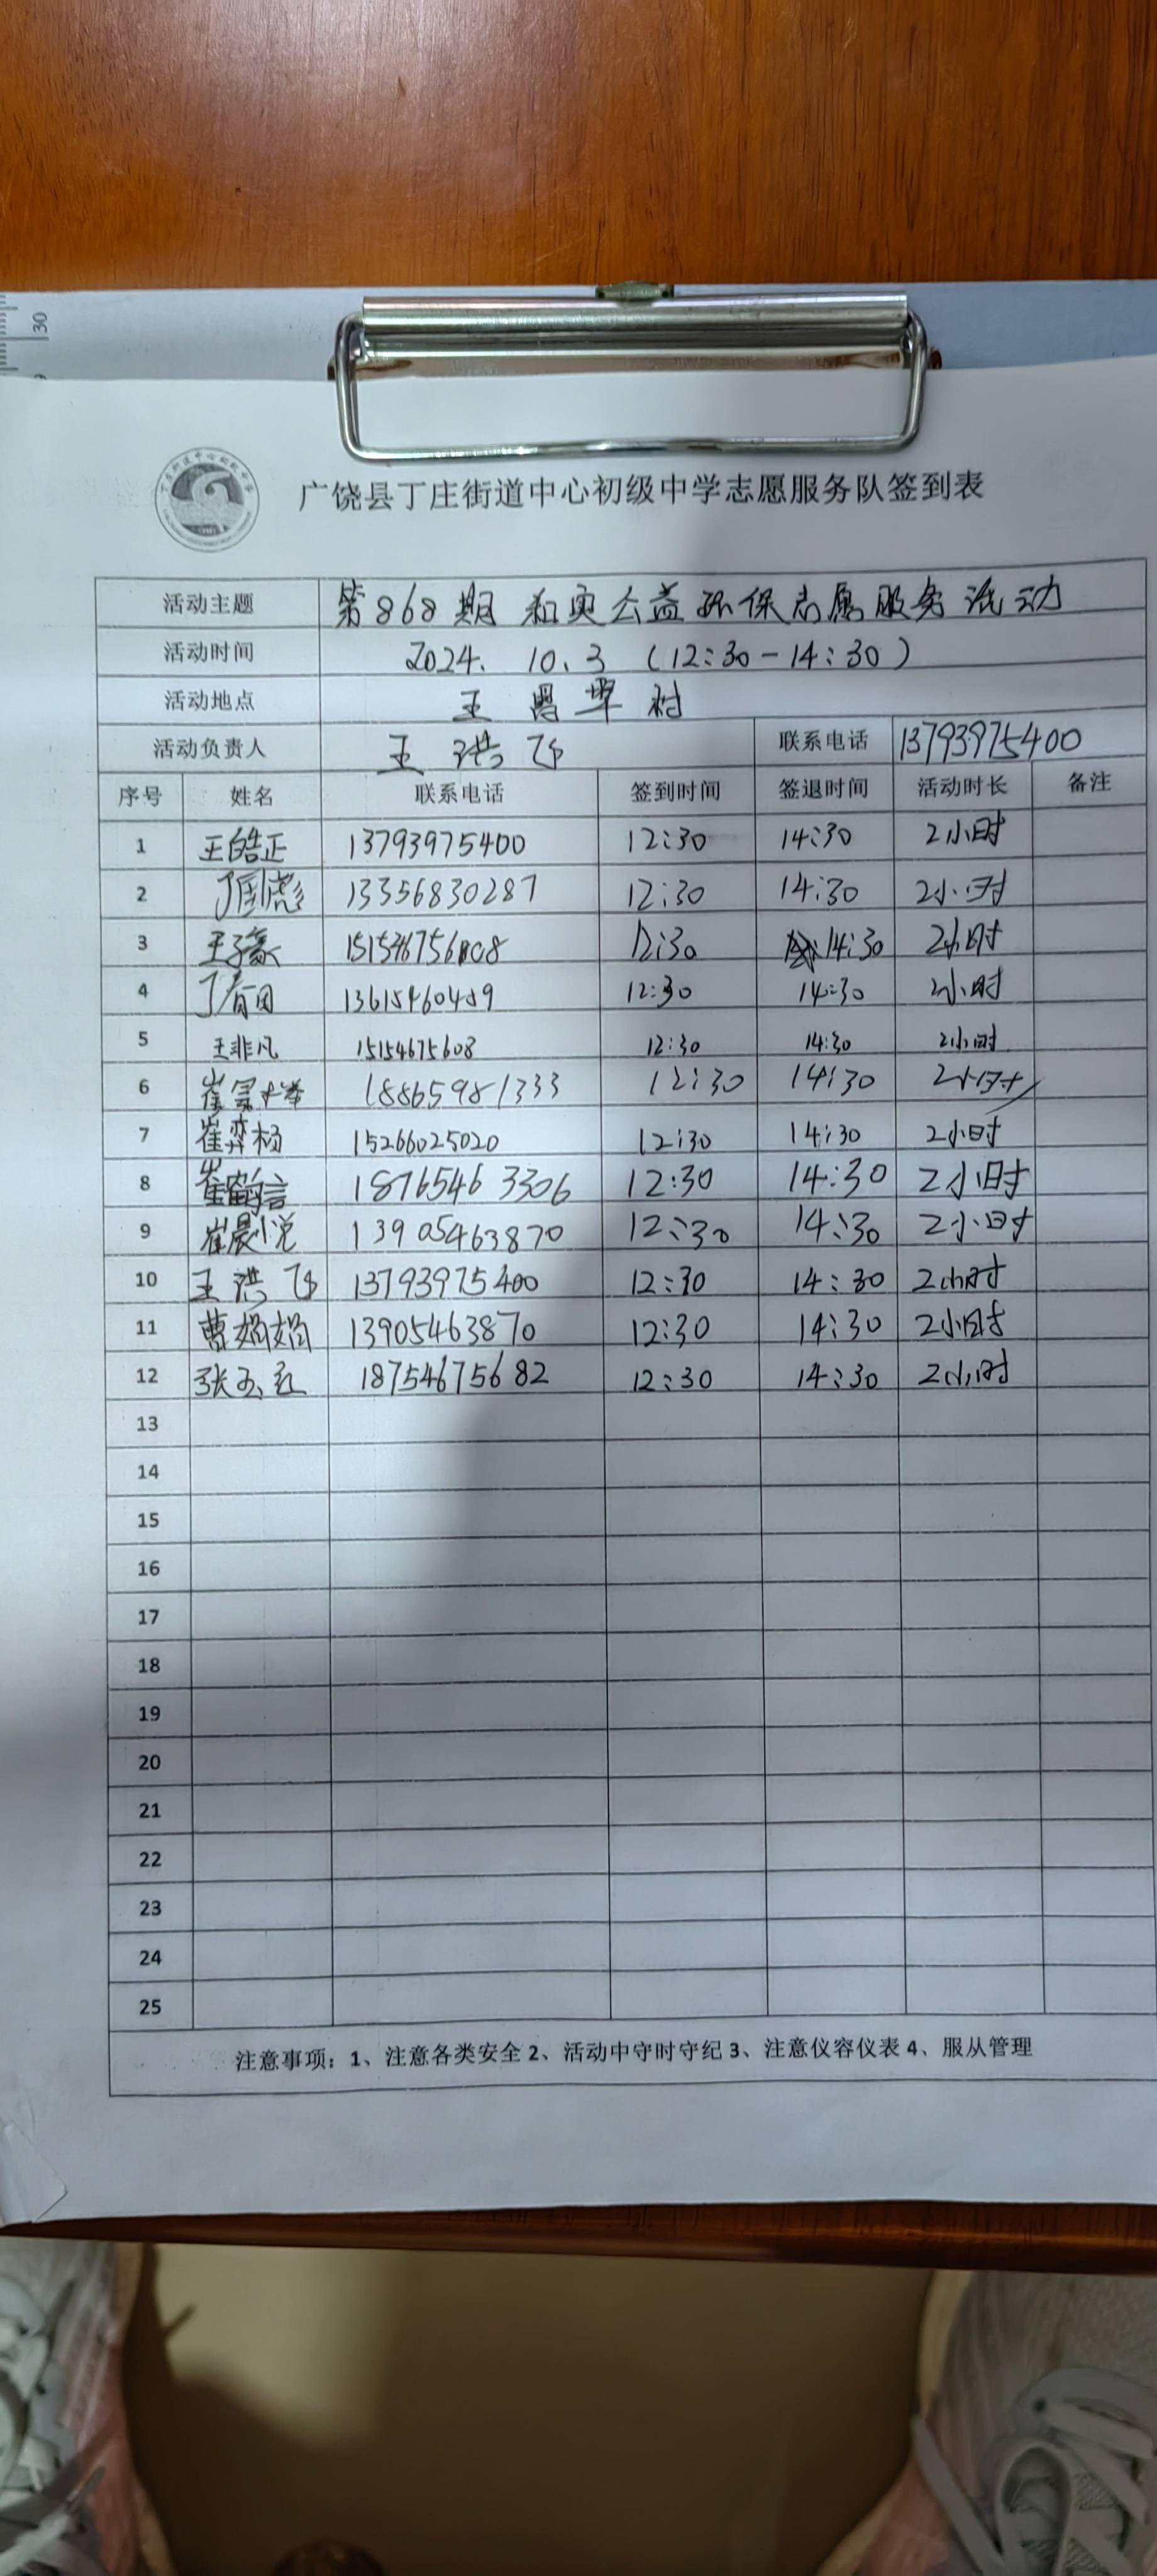 30
广饶县丁庄街道中心初级中学志愿服务队签到表
活动主题 第868期 和奥公益环保志愿服务活动
活动时间 2024. 10.3 (12:30-14:30)
活动地点 王 署 埠 村
活动负责人 王 洪 飞 联系电话 13793975400
序号 姓名 联系电话 签到时间 签退时间 活动时长 备注
1 王皓正 13793975400 12:30 14:30 2小时
2 丁 彪 13356830287 12:30 14:30 2小时
3 王子豪 12:30 14:30 2小时
4 丁春田 13615460459 12:30 14:30 2小时
5 王非凡 15154675608 12:30 14:30 2小时
6 崔 18865981333 12:30 14:30 2小时
7 崔弈杨 15266025020 12:30 14:30 2小时
8 崔 言 18765463306 12:30 14:30 2小时
9 崔晨悦 13905463870 12:30 14:30 2小时
10 王洪飞 13793975400 12:30 14:30 2小时
11 曹娟娟 13905463870 12:30 14:30 2小时
12 张玉红 18754675682 12:30 14:30 2小时
13
14
15
16
17
18
19
20
21
22
23
24
25
注意事项：1、注意各类安全 2、活动中守时守纪 3、注意仪容仪表 4、服从管理